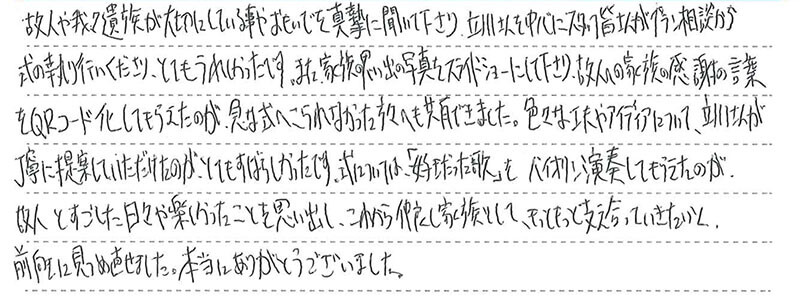 故人や我々遺族が大切にしている事やおもいでを真摯に聞いて下さり、立川さんを中心にスタッフ皆さんがプラン相談から
式の執り行いくださり、とてもうれしかったです。また家族の思い出の写真をスライドショーにして下さり、故人への家族の感謝の言葉
をQRコード化してもらえたのが、急な式へこられなかった方々へも共有できました。色々な工夫やアイディアについて、立川さんが
丁寧に提案していただけたのが、とてもすばらしかったです。式については、「好きだった歌」を バイオリン演奏してもらえたのが、
故人とすごした日々や楽しかったことを思い出し、これから仲良し家族として、もっともっと支え合っていきたいと、
前向きに見つめ直せました。本当にありがとうございました。